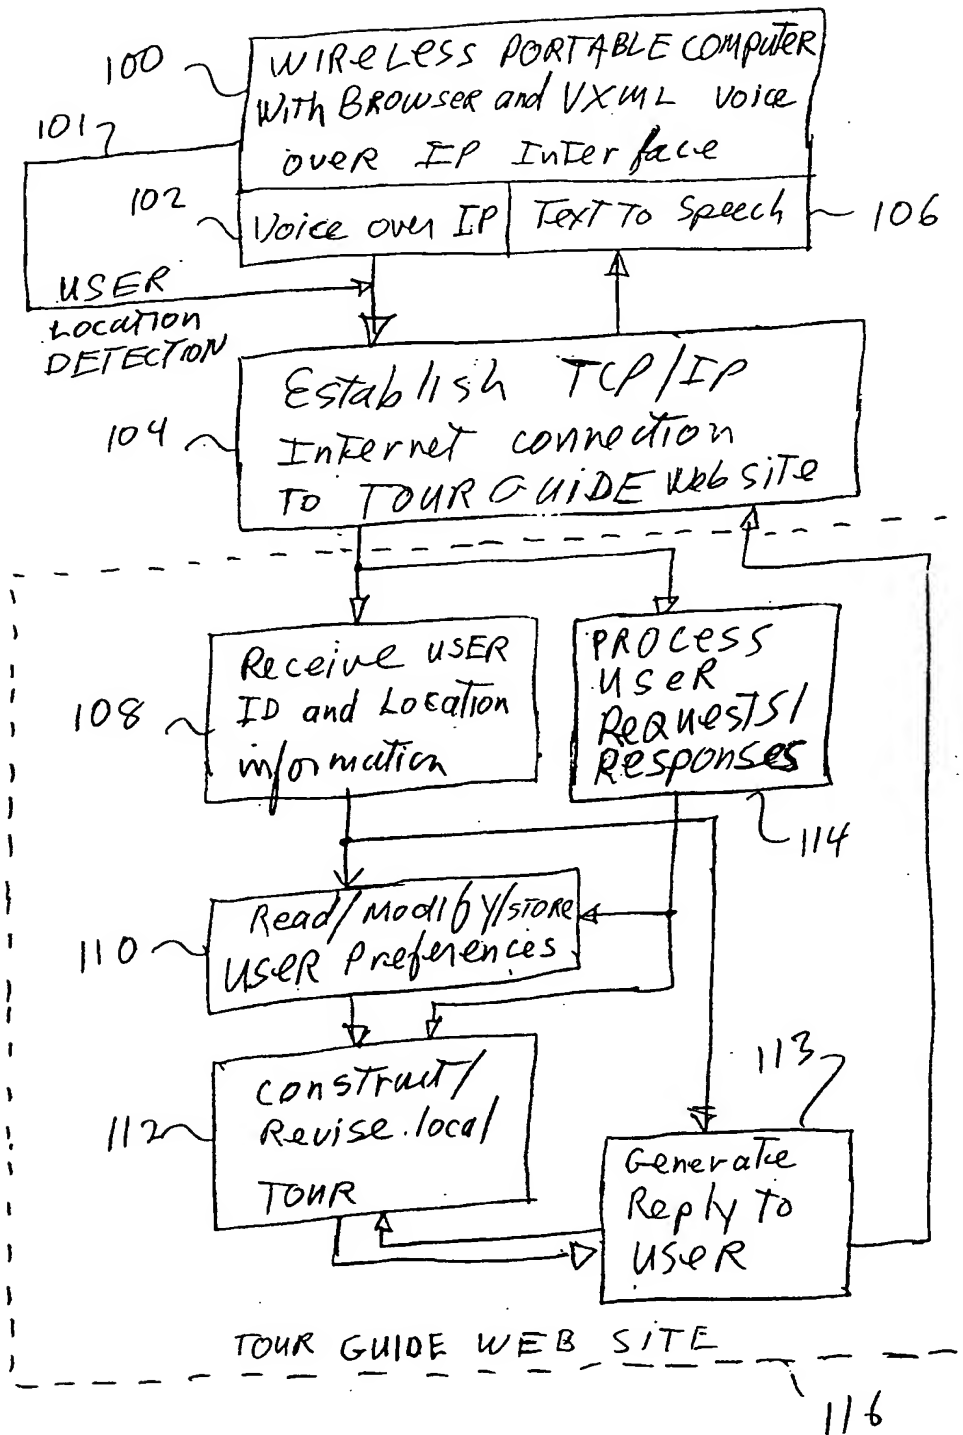 100
WIRELESS PORTABLE COMPUTER
With BROWSER and VXML voice
over IP InTerface
101
102
Voice over IP
Text To Speech
106
USER
Location
DETECTION
104
Establish TCP/IP
Internet connection
To TOUR GUIDE Web site
108
Receive USER
ID and Location
information
PROCESS
USER
Requests/
Responses
114
110
Read/Modify/STORE
USER Preferences
112
Construct/
Revise local
TOUR
113
Generate
Reply To
USER
TOUR GUIDE WEB SITE
116